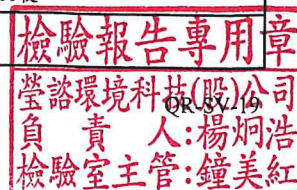 檢驗報告專用章
瑩諮環境科技(股)公司
QR-SV-19
負責人:楊炯浩
檢驗室主管:鐘美紅